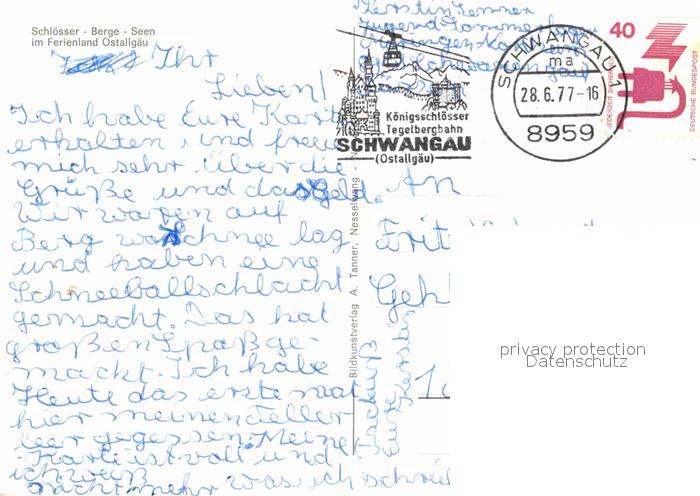 Schlösser - Berge - Seen
im Ferienland Ostallgäu
Ihr
Lieben!
Ich habe Eure Karte
erhalten, und freue
mich sehr über die
Grüße und das Geld.
Wir waren auf
Berg wo Schnee lag
und haben eine
Schneeballschlacht
gemacht. Das hat
großen Spaß ge-
macht. Ich habe
Heute das erste mal
hier meinen Teller
leer gegessen. Meine
Karte ist voll und
ich weiß
nicht mehr was ich schrei
Tschüß
Eure Kerstin
Bildkunstverlag A. Tanner, Nesselwang
Kerstin
Königsschlösser
Tegelbergbahn
SCHWANGAU
(Ostallgäu)
SCHWANGAU 1
ma
28.6.77-16
8959
40
JEDERZEIT SICHERHEIT
DEUTSCHE BUNDESPOST
An
Geh
privacy protection
Datenschutz